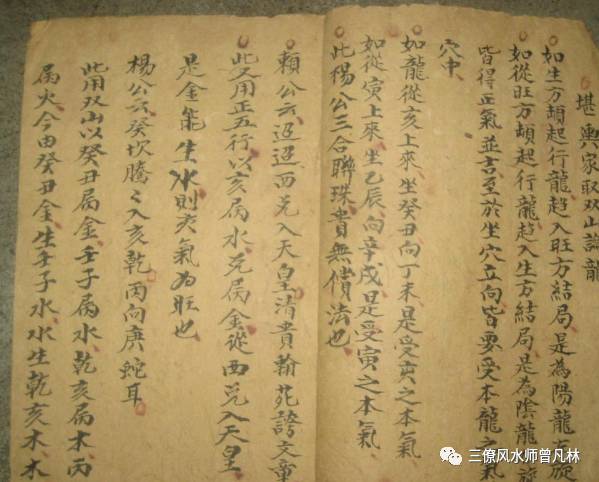 堪輿家取双山論龍
如生方頓起行龍趨入旺方結局是為陽龍左旋
如從旺方頓起行龍趨入生方結局是為陰龍
皆得正氣並吉至於坐穴立向皆要受本龍之氣
穴中
如龍從亥上來坐癸丑向丁未是受亥之本氣
如從寅上來坐乙辰向辛戌是受寅之本氣
此楊公三合聯珠貴無價法也
賴公云迢迢西兌入天皇清貴翰苑誇文章
此又用正五行以亥屬水兌屬金從西兌入天皇
是金能生水則亥氣為旺也
楊公云癸坎騰々入亥乾丙向庚蛇耳
此用双山以癸丑局金壬子屬水乾亥屬木丙
屬火今由癸丑金生壬子水水生乾亥木木
三僚风水师曾凡林